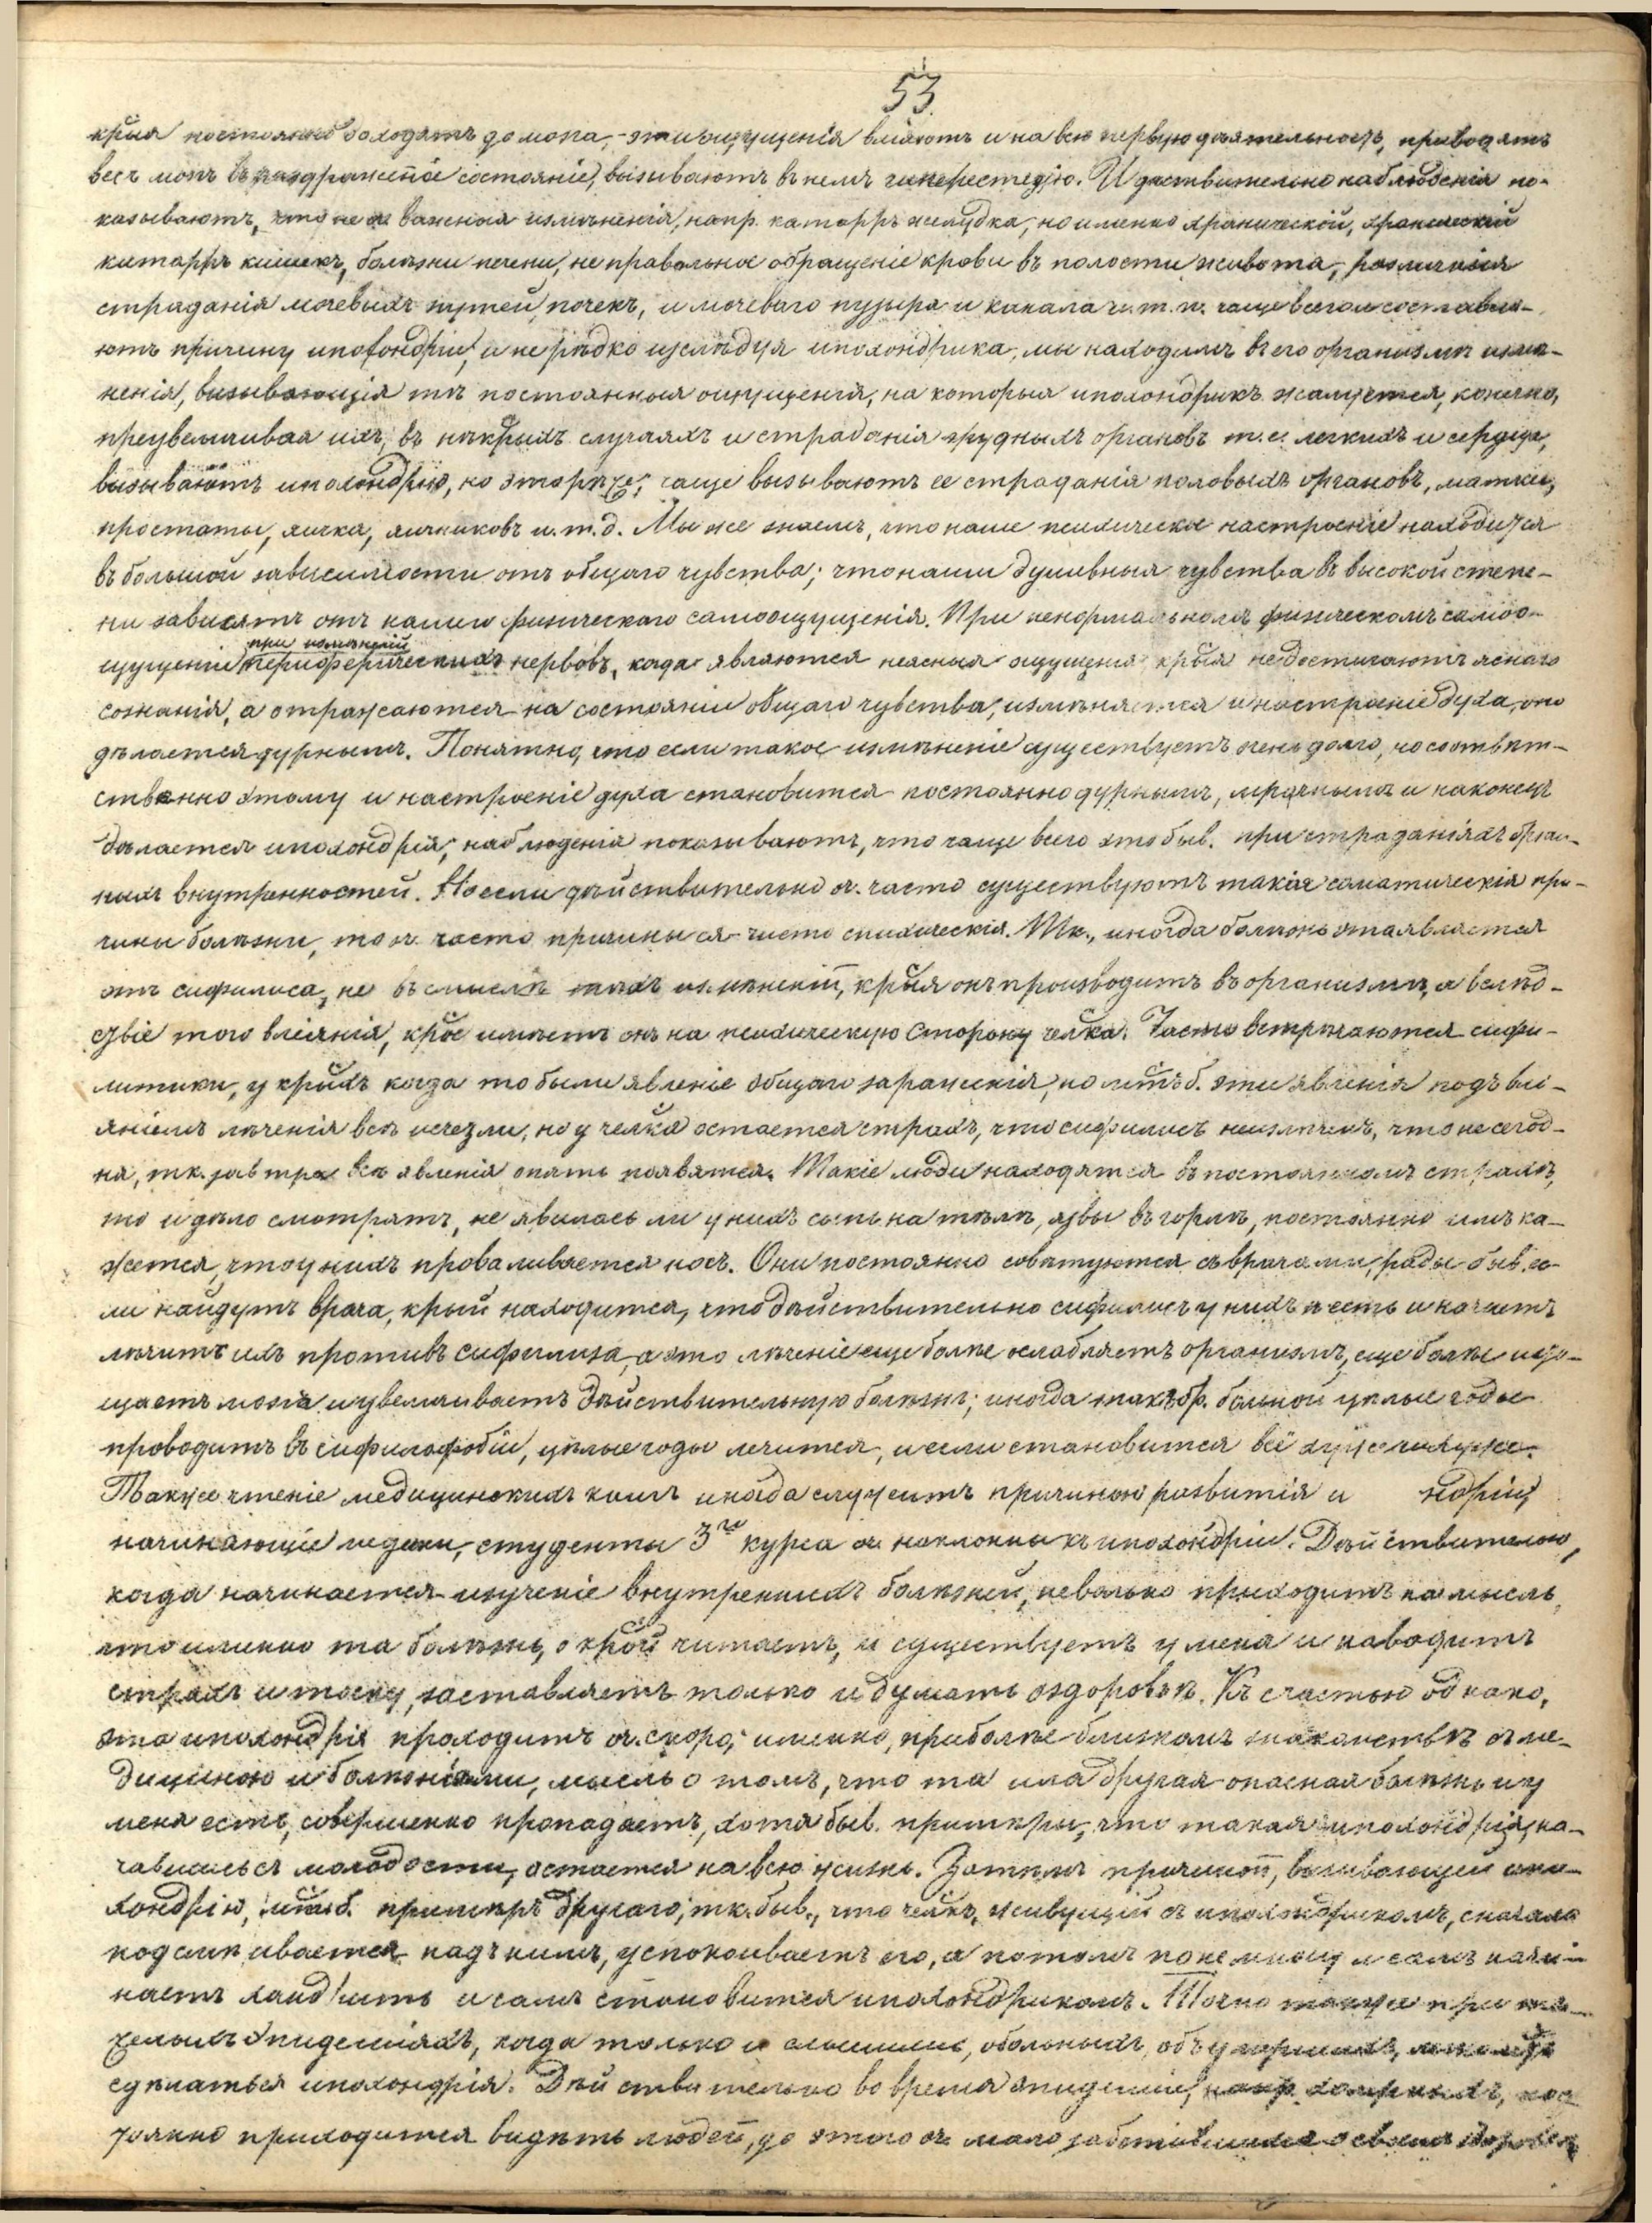 53.
крыя постоянно доходятъ до мозга, - эти ощущенія вліяютъ и на всю нервную дѣятельность, приводятъ
весь мозгъ въ раздраженное состояніе, вызываютъ въ немъ гиперестезію. И дѣствительно наблюденія по-
казываютъ, что не важныя измѣненія, напр. катарръ желудка, но именно хроническій, хроническій
катарръ кишекъ, болѣзни печени, не правольное обращеніе крови въ полости живота, различныя
страданія мочевыхъ путей, почекъ, и мочеваго пузыря и канала и. т. п. чаще всего и составля-
ютъ причину ипохондріи, и не рѣдко изслѣдуя ипохондрика, мы находимъ въ его организмѣ измѣ-
ненія, вызывающія тѣ постоянныя ощущенія, на которыя ипохондрикъ жалуется, конечно,
преувеличивая ихъ; въ нѣкрыхъ случаяхъ и страданія грудныхъ органовъ т. е. легкихъ и сердца,
вызываютъ ипохондрію, но это рѣже; чаще вызываютъ ее страданія половыхъ органовъ, матки,
простаты, яичка, яичниковъ и. т. д. Мы же знаемъ, что наше психическое настроеніе находится
въ большой зависимости отъ общаго чувства; что наши душевныя чувства въ высокой степе-
ни зависятъ отъ нашего физическаго самоощущенія. При ненормальномъ физическомъ самоо-
щущеніи при измѣненіи периферическихъ нервовъ, когда являются неясныя ощущенія крыя не достигаютъ яснаго
сознанія, а отражаются на состояніи общаго чувства, измѣняется и настроеніе духа, оно
дѣлается дурнымъ. Понятно, что если такое измѣненіе существуетъ очень долго, то соотвѣт-
ственно этому и настроеніе духа становится постоянно дурнымъ, мрачнымъ и наконецъ
дѣлается ипохондрія; наблюденія показываютъ, что чаще всего это быв. при страданіяхъ брюш-
ныхъ внутренностей. Но если дѣйствительно оч. часто существуютъ такія соматическія при-
чины болѣзни, то оч. часто причины ея чисто психическія. Тк., иногда болѣзнь эта является
отъ сифилиса, не въ смыслѣ тѣхъ измѣненій, крыя онъ производитъ въ организмѣ, а вслѣд-
ствіе того вліянія, крое имѣетъ онъ на психическую сторону челка. Часто встрѣчаются сифи-
литики, у крыхъ когда то были явленіе общаго зараженія, но м. б. эти явленія подъ влі-
яніемъ лѣченія всѣ исчезли, но у челка остается страхъ, что сифилисъ неизлѣчимъ, что не сегод-
ня, тк. завтра всѣ явленія опять появятся. Такіе люди находятся въ постоянномъ страхѣ,
то и дѣло смотрятъ, не явилась ли у нихъ сыпь на тѣлѣ, язвы въ горлѣ, постоянно имъ ка-
жется, что у нихъ проваливается носъ. Они постоянно совѣтуются съ врачами, рады быв. ес-
ли найдутъ врача, крый находится, что дѣйствительно сифилисъ у нихъ и есть и начнетъ
лѣчить ихъ противъ сифилиза, а это лѣченіе еще болѣе ослабляетъ организмъ, еще болѣе исто-
щаетъ мозгъ и увеличиваетъ дѣйствительную болѣзнь; иногда такъ обр. больной цѣлые годы
проводитъ въ сифилофобіи, цѣлые годы лечится, и если становится всё хуже и хуже.
Также чтеніе медицинскихъ книгъ иногда служитъ причиною развитія и ндріи,
начинающіе медики, студенты 3го курса оч. наклонны къ ипохондріи. Дѣйствительно,
когда начинается изученіе внутреннихъ болѣзней, невольно приходитъ на мысль,
что именно та болѣзнь, о крой читаетъ, и существуетъ у меня и наводитъ
страхъ и тоску, заставляетъ только и думать оздоровьѣ. Къ счастью однако,
эта ипохондрія проходитъ оч. скоро; именно, при болѣе близкомъ знакомствѣ съ ме-
дициною и болѣзнями, мысль о томъ, что та или другая опасная болѣзнь и у
меня есть, совершенно пропадаетъ, хотя быв. примѣры, что такая ипохондрія, на-
чавшись съ молодости, остается на всю жизнь. Затѣмъ причиной, вызывающей ипо-
хондрію, м. б. примѣръ другаго; тк. быв., что челкъ, живущій съ ипохондрикомъ, сначала
подсмѣивается надъ нимъ, успокоиваетъ его, а потомъ понемногу и самъ начи-
наетъ хандрить и самъ становится ипохондрикомъ. Точно также при тя-
желыхъ эпидеміяхъ, когда только и слышишь, обольныхъ, объ умершихъ, можетъ
сдѣлаться ипохондрія. Дѣйствительно во время эпидеміи, напр. холерныхъ, пос
тоянно приходится видѣть людей, до этого оч. мало заботившихся о своемъ здоровьѣ,